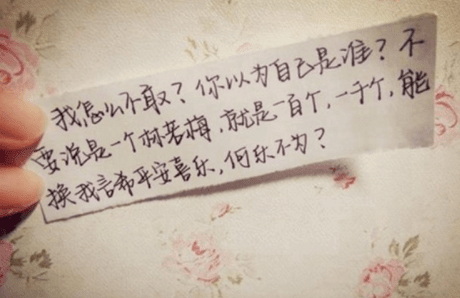 我怎么不敢？你以为自己是谁？不
要说是一个林若梅，就是一百个，一千个，能
换我言希平安喜乐，何乐不为？